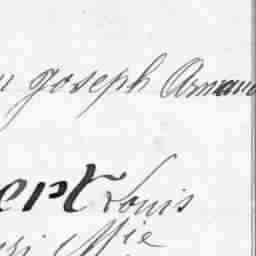 u joseph Arman
ert Louis
Mie